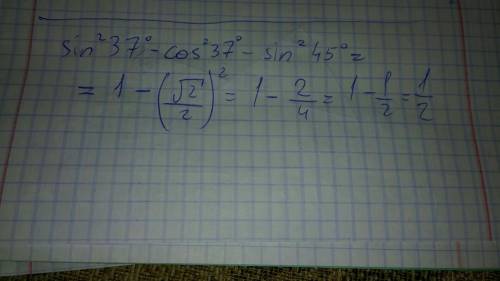 sin²37° - cos²37° - sin²45° =
= 1 - (√2/2)² = 1 - 2/4 = 1 - 1/2 = 1/2